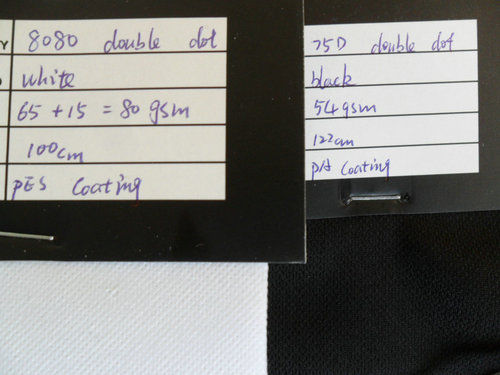 8080 double dot
white
65 + 15 = 80 gsm
100cm
PES Coating
75D double dot
black
54gsm
122cm
PA Coating